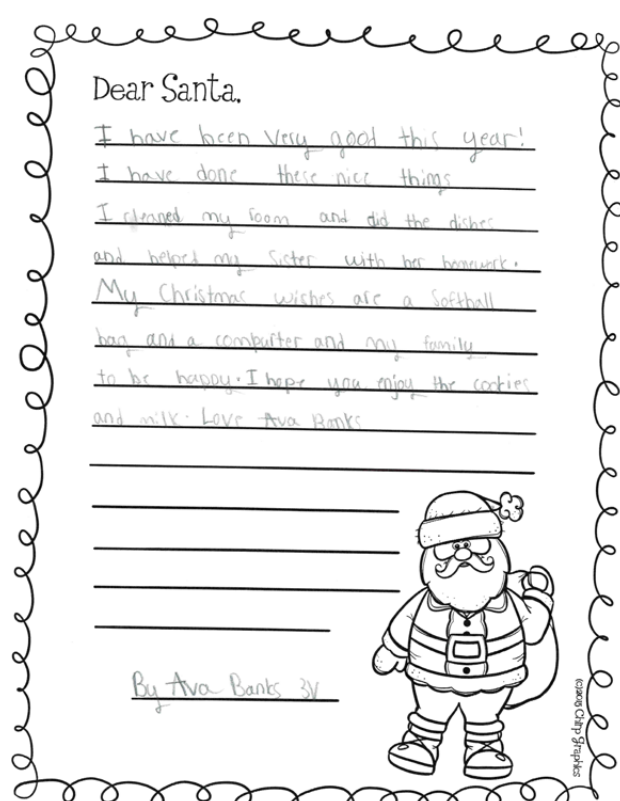 Dear Santa,
I have been very good this year!
I have done these nice things
I cleaned my room and did the dishes
and helped my sister with her homework.
My Christmas wishes are a softball
bag and a compurter and my family
to be happy. I hope you enjoy the cookies
and milk. Love Ava Banks
By Ava Banks 3V
(c)2015 Chirp Graphics